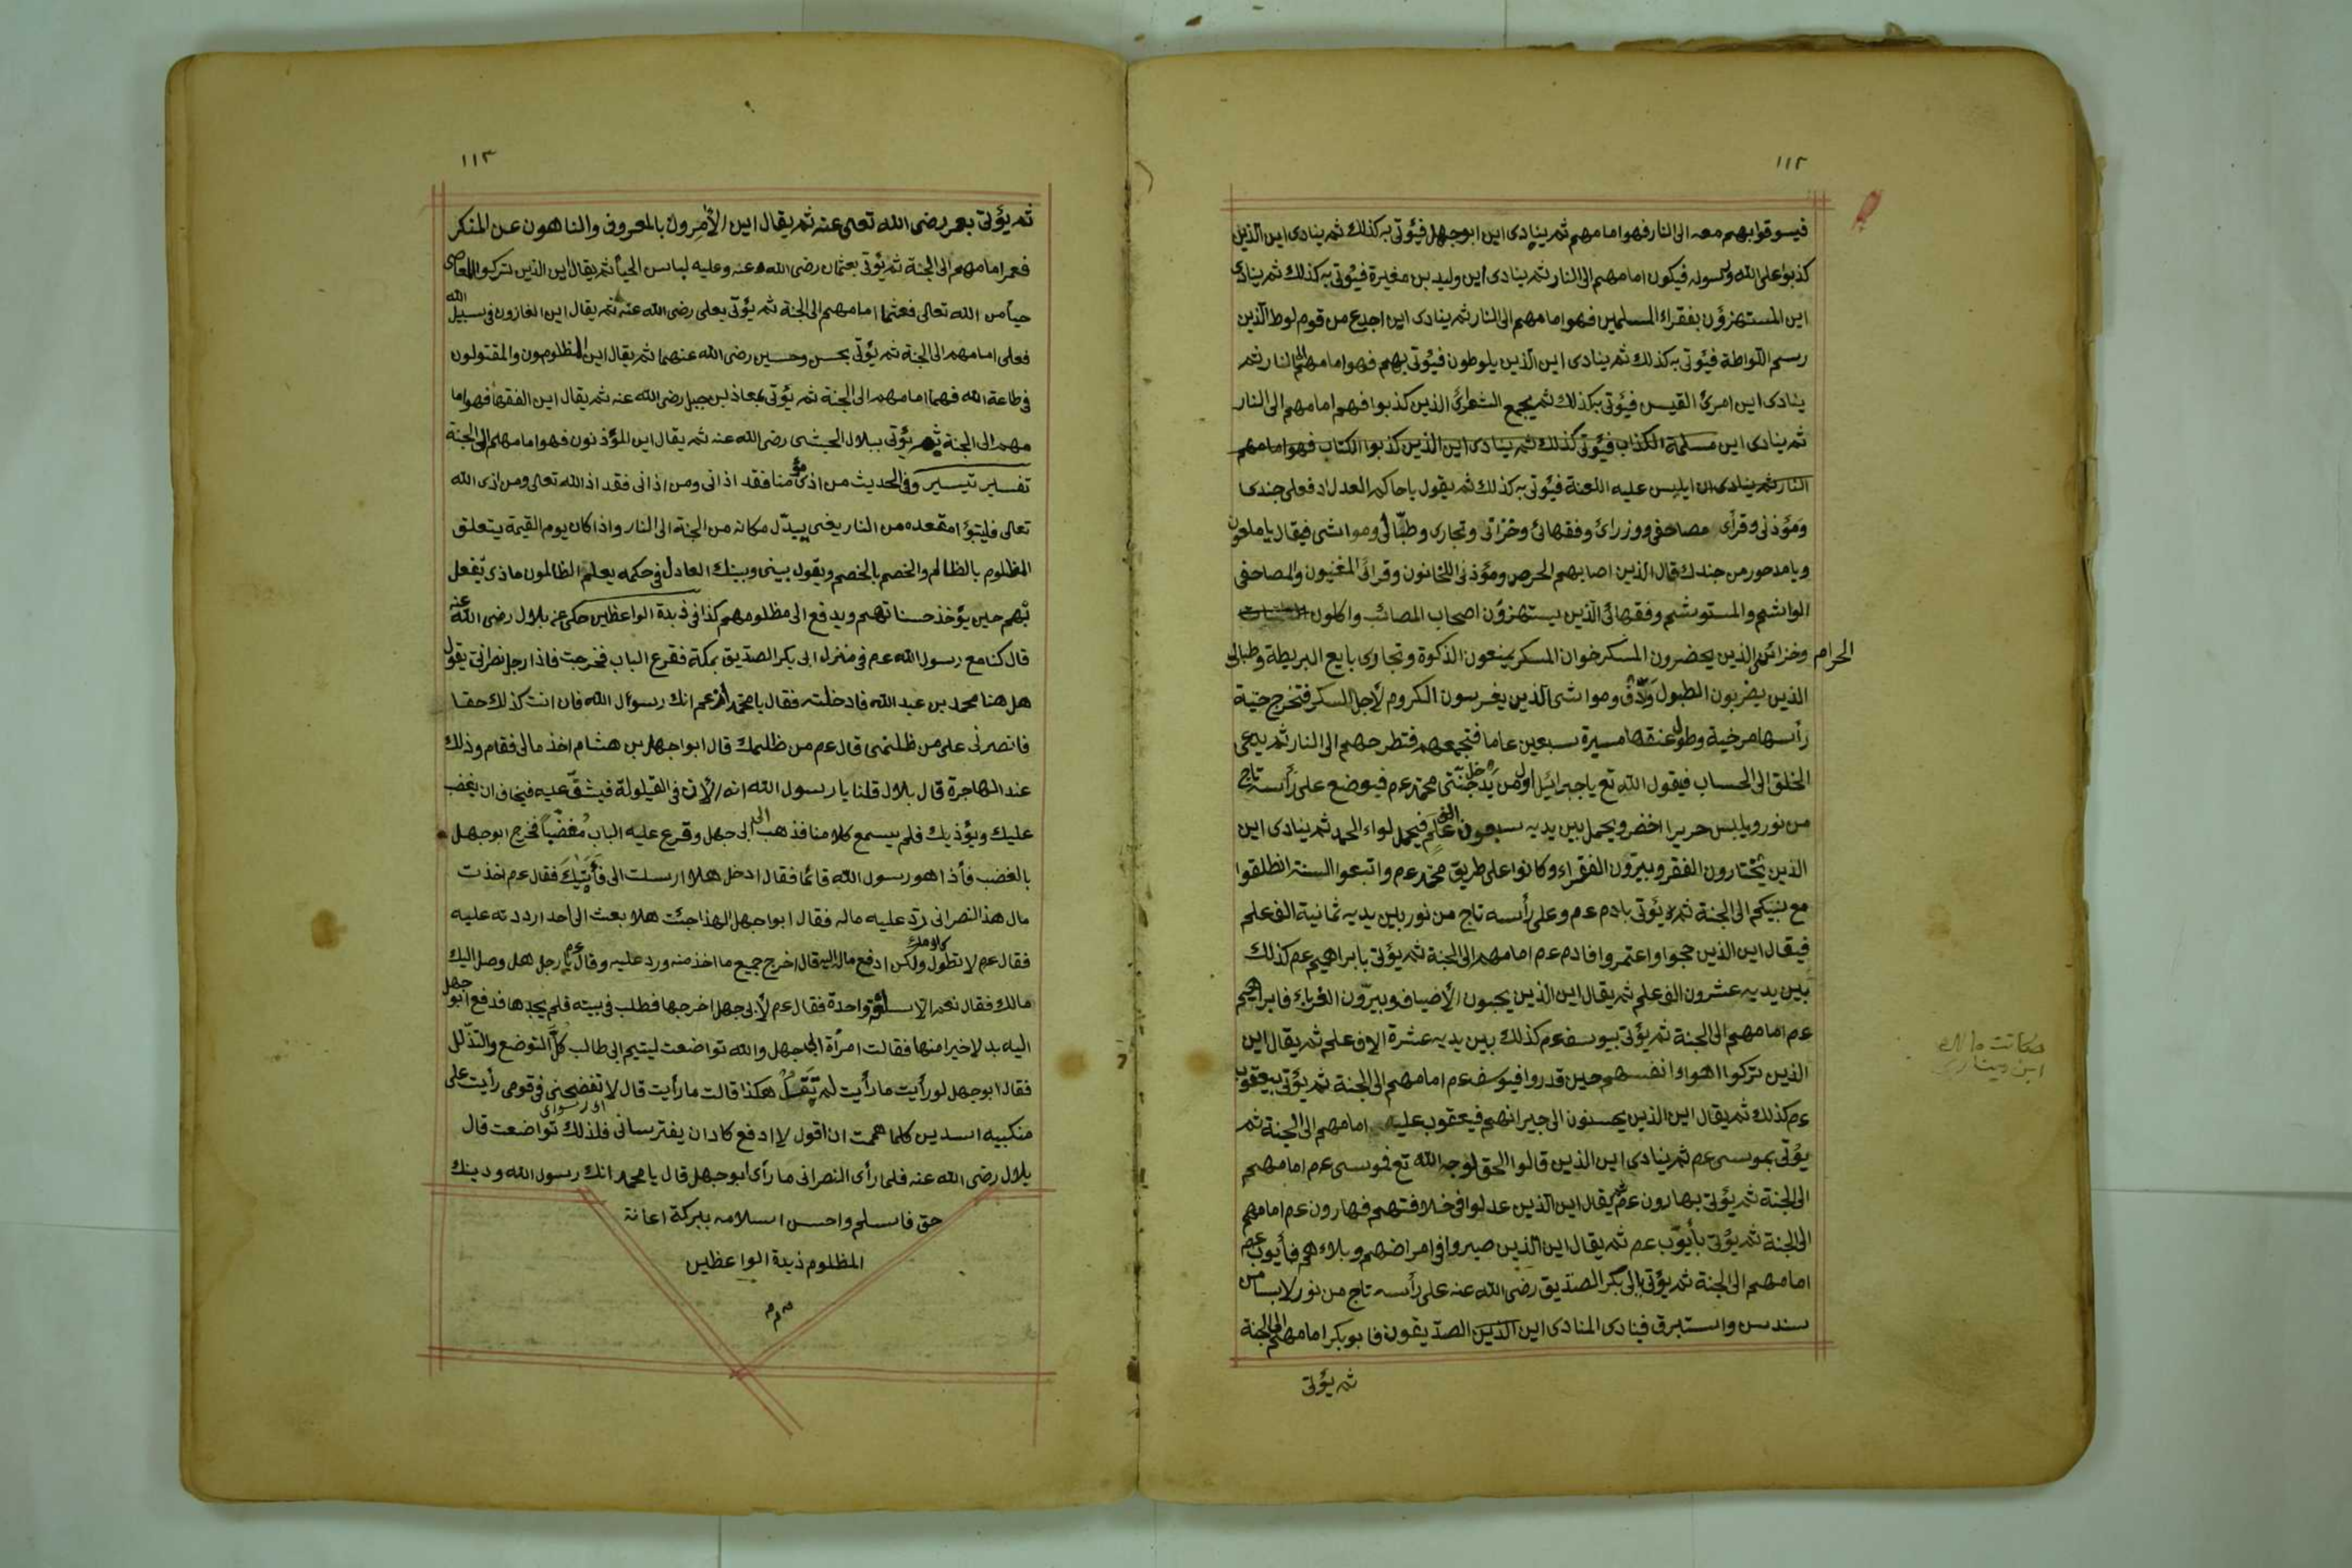 ١١٢
فيسوقوا بهم معه الى النار فهو امامهم ثم ينادى اين ابوجهل فيؤتى به كذلك ثم ينادى اين الذين
كذبوا على الله ورسوله فيكون امامهم الى النار ثم ينادى اين وليد بن مغيرة فيؤتى به كذلك ثم ينادى
اين المستهزؤن بفقراء المسلمين فهو امامهم الى النار ثم ينادى اين اجدع من قوم لوط الذين
رسم اللواطة فيؤتى به كذلك ثم ينادى اين الذين يلوطون فيؤتى بهم فهو امامهم الى النار ثم
ينادى اين امرئ القيس فيؤتى به كذلك ثم يجمع الشعرائ الذين كذبوا فهو امامهم الى النار
ثم ينادى اين مسلمة الكذاب فيؤتى كذلك ثم ينادى اين الذين كذبوا الكتاب فهو امامهم
النار ثم ينادى اين ابليس عليه اللعنة فيؤتى به كذلك ثم يقول يا حاكم العدل ادفع لى جندى
ومؤذنى وقرأى مصاحفى ووزرائ وفقهائ وخزانى وتجارى وطبالى ومواشى فيقال يا ملعون
ويا مدحور من جندك قال الذين اصابهم الحرص ومؤذنى اللخانون وقرائ المغنيون والمصاحفى
الواشم والمستوشم وفقهائ الذين يستهزؤن اصحاب المصائب واكلون
الحرام وخزائنى الذين يحضرون المسكر خوان المسكر يمنعون الذكوة وتجارى بايع البريطة وطبالى
الذين يضربون الطبول والدق ومواشى الذين يغرسون الكروم لأجل السكر فتخرج حية
رأسها مرخية وطول عنقها مسيرة سبعين عاما فتجمعهم فتطرحهم الى النار ثم يدعى
الخلق الى الحساب فيقول الله تع يا جبرائيل اول من يدخل جنتى محمد عم فيوضع على رأسه تاج
من نور ويلبس حريرا اخضر ويحمل بين يديه سبعون الف علم فيحمل لواء الحمد ثم ينادى اين
الذين يختارون الفقر ويبرون الفقراء وكانوا على طريق محمد عم واتبعوا السنة انطلقوا
مع نبيكم الى الجنة ثم يؤتى بادم عم وعلى رأسه تاج من نور بين يديه ثمانية الف علم
فيقال اين الذين حجوا واعتمروا فادم عم امامهم الى الجنة ثم يؤتى بابراهيم عم كذلك
بين يديه عشرون الف علم ثم يقال اين الذين يحبون الأضياف ويبرون الغرباء فابراهيم
عم امامهم الى الجنة ثم يؤتى بيوسف عم كذلك بين يديه عشرة الاف علم ثم يقال اين
الذين تركوا اهواء انفسهم حين قدروا فيوسف عم امامهم الى الجنة ثم يؤتى بيعقوب
عم كذلك ثم يقال اين الذين يحسنون الى جيرانهم فيعقوب عليه امامهم الى الجنة ثم
يؤتى بموسى عم ثم ينادى اين الذين قالوا الحق لوجه الله تع فموسى عم امامهم
الى الجنة ثم يؤتى بهارون عم ثم يقال اين الذين عدلوا فى خلافتهم فهارون عم امامهم
الى الجنة ثم يؤتى بأيوب عم ثم يقال اين الذين صبروا فى امراضهم وبلاءهم فأيوب عم
امامهم الى الجنة ثم يؤتى بابى بكر الصديق رضى الله عنه على رأسه تاج من نور لابسا من
سندس واستبرق فينادى المنادى اين الذين الصديقون فابوبكر امامهم الى الجنة
ثم يؤتى
١١٣
ثم يؤتى بعمر رضى الله تعالى عنه ثم يقال اين الأمرون بالمعروف والناهون عن المنكر
فعمر امامهم الى الجنة ثم يؤتى بعثمان رضى الله عنه وعليه لباس الحيأ ثم يقال اين الذين تركوا المعاصى
حيأ من الله تعالى فعثما امامهم الى الجنة ثم يؤتى بعلى رضى الله عنه ثم يقال اين الغازون فى سبيل الله
فعلى امامهم الى الجنة ثم يؤتى بحسن وحسين رضى الله عنهما ثم يقال اين المظلومون والمقتولون
فى طاعة الله فهما امامهم الى الجنة ثم يؤتى بمعاذ بن جبل رضى الله عنه ثم يقال اين الفقهأ فهو اما
مهم الى الجنة ثم يؤتى ببلال الحبشى رضى الله عنه ثم يقال اين المؤذنون فهو امامهم الى الجنة
تفسير تيسير وفى الحديث من اذى مؤمنا فقد اذانى ومن اذانى فقد اذ الله تعالى ومن اذى الله
تعالى فليتبؤ امقعده من النار يعنى يبدل مكانه من الجنة الى النار واذا كان يوم القيمة يتعلق
المظلوم بالظالم والخصم بالخصم ويقول بينى وبينك العادل فى حكمه يعلم الظالمون ماذى يفعل
بهم حين يؤخذ حسناتهم ويدفع الى مظلومهم كذا فى ذبدة الواعظين حكى عن بلال رضى الله عنه
قال كنا مع رسول الله عم فى منزل ابى بكر الصديق بمكة فقرع الباب فخرجت فاذا رجل نصرانى يقول
هل هنا محمد بن عبد الله فادخلته فقال يا محمد أتزعم انك رسوأل الله فان انت كذلك حقا
فانصرنى على من ظلمنى قال عم من ظلمك قال ابواجهل بن هشام اخذ مالى فقام وذلك
عند الهاجرة قال بلال قلنا يا رسول الله انه الأن فى القيلولة فيشق عليه فيخاف ان يغضب
عليك ويؤذيك فلم يسمع كلامنا فذهب الى ابى جهل وقرع عليه الباب مغضبا فخرج ابوجهل
بالغضب فأذا هو رسول الله قائما فقال ادخل هلا ارسلت الى فأتيك فقال عم اخذت
مال هذا النصرانى رد عليه ماله فقال ابواجهل الهذا جئت هلا بعث الى احد ارددته عليه
فقال عم لا تطول كلامك ولكن ادفع ماله اليه قال اخرج جميع ما اخذ منه ورد عليه وقال عم يا رجل هل وصل اليك
مالك فقال نعم الا سلة واحدة فقال عم لأبى جهل اخرجها فطلب فى بيته فلم يجدها فدفع ابو جهل
اليه بدلا خيرا منها فقالت امرأة ابى جهل والله تواضعت ليتيم ابى طالب كل التوضع والتذلل
فقال ابوجهل لو رأيت ما رأيت لم تقل هكذا قالت ما رأيت قال لا تفضحنى فى قومى رأيت على
منكبيه اسدين كلما هممت ان اقول لا ادفع كادا ن يفترسانى فلذلك تواضعت قال
بلال رضى الله عنه فلما رأى النصرانى ما رأى ابوجهل قال يا محمد انك رسول الله ودينك
حق فاسلم واحسن اسلامه ببركة اعانة
المظلوم ذبدة الواعظين